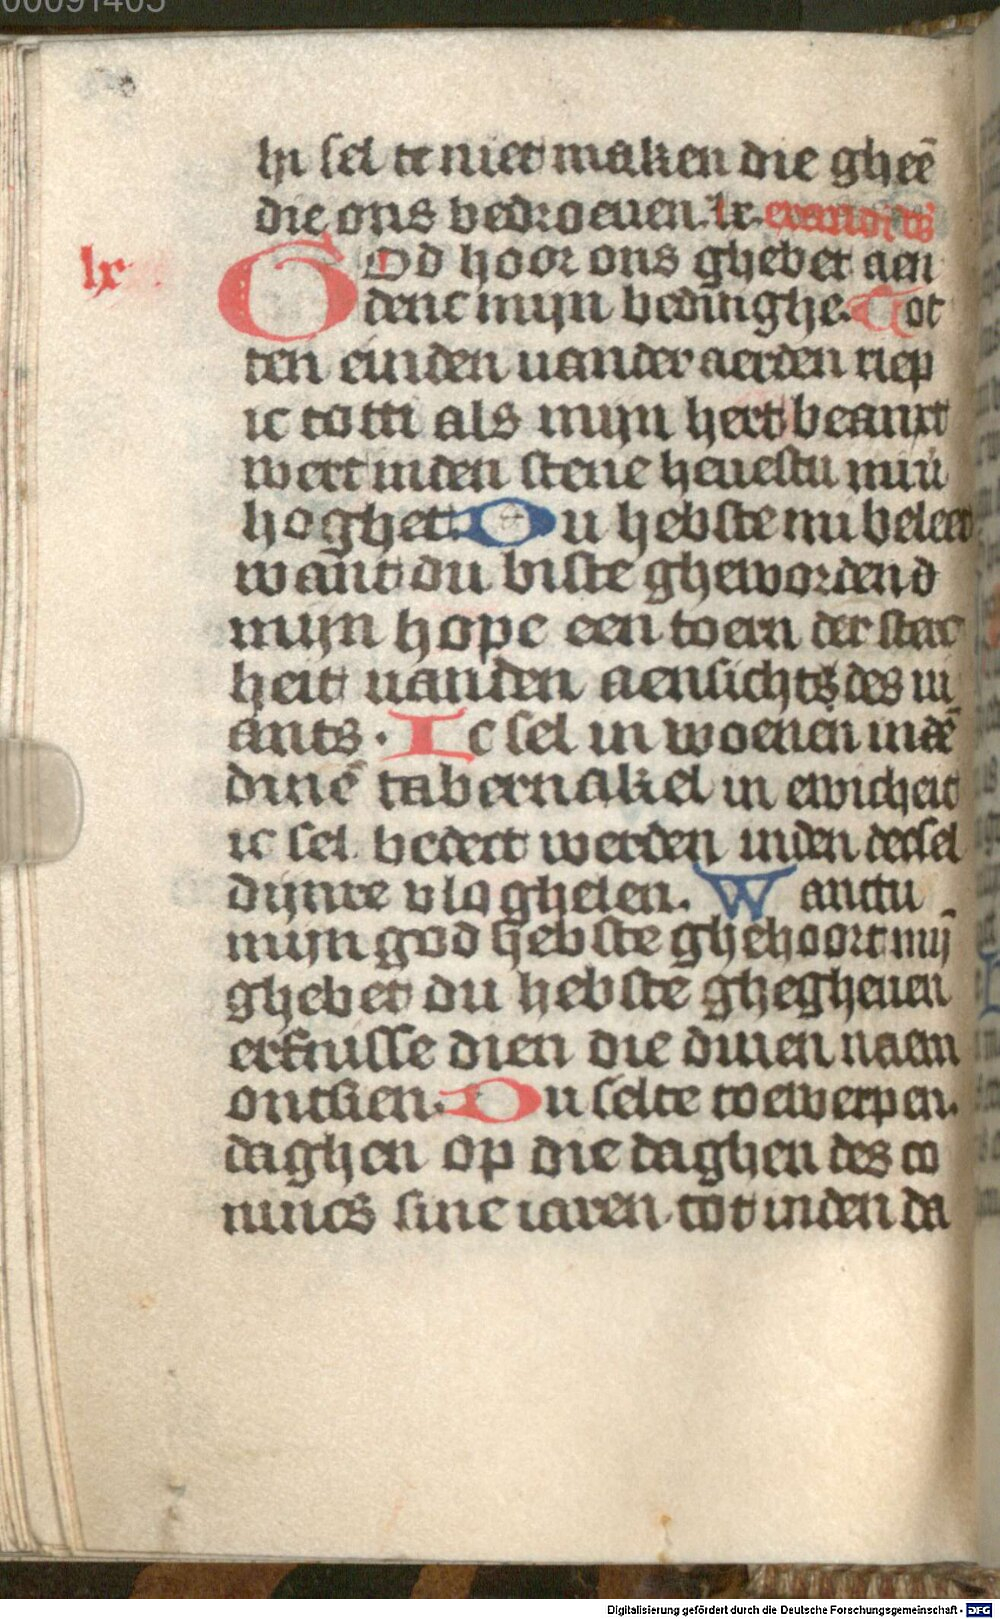 00091405
hi sel te niet maken die gheē
die ons bedroeuen. lx. exaudi
lx
God hoor ons ghebet aen
denc mijn bedinghe. Tot
ten einden uander aerden riep
ic totti als mijn hert beanxt
wert inden stene heuestu mi ū
hoghet. Du hebste mi beleet
want du biste gheworden d
mijn hope een toern der sterc
heit uanden aensichts des ui
ants. Ic sel in woenen indē
dinē tabernakel in ewicheit
ic sel bedect werden inden decsel
dijnre vloghelen. Wanttu
mijn god hebste ghehoort mij̄
ghebet du hebste ghegheuen
erfnisse dien die dinen naem
ontsien. Du selte toewerpen
daghen op die daghen des co
nincs sine iaren tot inden da
Digitalisierung gefördert durch die Deutsche Forschungsgemeinschaft - DFG